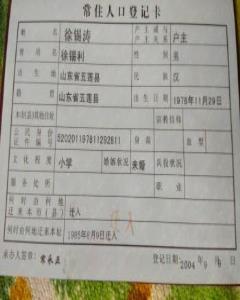 常住人口登记卡
姓名 徐锡涛 户主或与户主关系 户主
曾用名 徐锡利 性别 男
出生地 山东省五莲县 民族 汉
籍贯 山东省五莲县 出生日期 1978年11月29日
本市(县)其他住址 宗教信仰
公民身份证件编号 520201197811292811 身高 血型
文化程度 小学 婚姻状况 未婚 兵役状况
服务处所 职业
何时由何地迁来本市(县) 迁入
何时由何地迁来本址 1985年8月9日迁入
承办人签章: 登记日期: 2004年9月